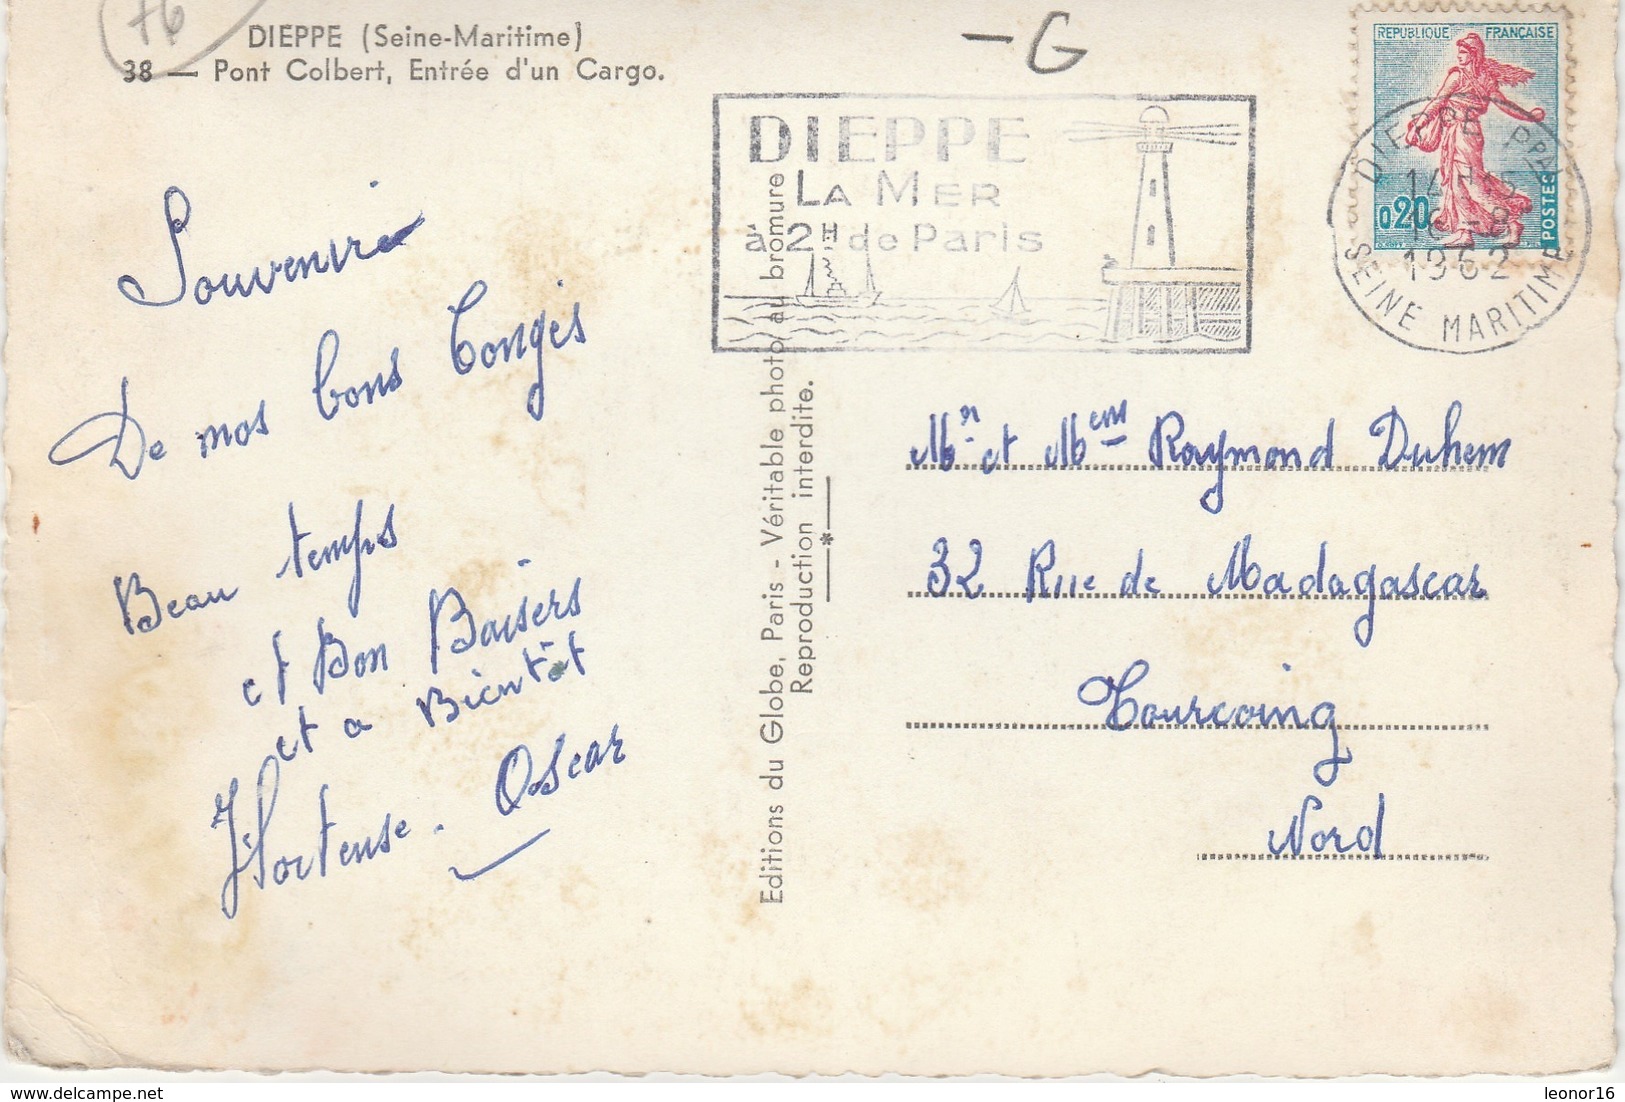 76
DIEPPE (Seine-Maritime)
38 — Pont Colbert, Entrée d'un Cargo.
- G
REPUBLIQUE FRANÇAISE
0,20
POSTES
DIEPPE PPAL
1962
SEINE MARITIME
DIEPPE
LA MER
à 2H de Paris
Souvenir
De mos bons Congés
Beau temps
et Bon Baisers
et a Bientôt
Hortense. Oscar
Editions du Globe, Paris - Véritable photo au bromure
Reproduction interdite.
Mr et Mem Raymond Duhem
32 Rue de Madagascar
Tourcoing
Nord
www.delcampe.net
leonor16